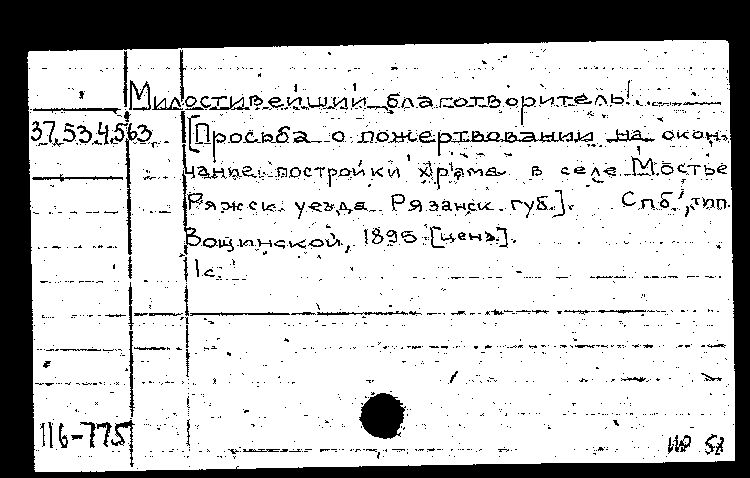 Милостивейший благотворитель!
37.53.4.563 [Просьба о пожертвовании на окон-
чание постройки храма в селе Мостье
Ряжск. уезда Рязанск. губ.]. Спб., тип.
Вощинской, 1895 [ценз.].
1с.
116-775